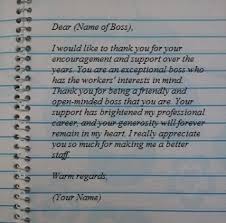 Dear (Name of Boss),
I would like to thank you for your
encouragement and support over the
years. You are an exceptional boss who
has the workers' interests in mind.
Thank you for being a friendly and
open-minded boss that you are. Your
support has brightened my professional
career, and your generosity will forever
remain in my heart. I really appreciate
you so much for making me a better
staff.
Warm regards,
(Your Name)